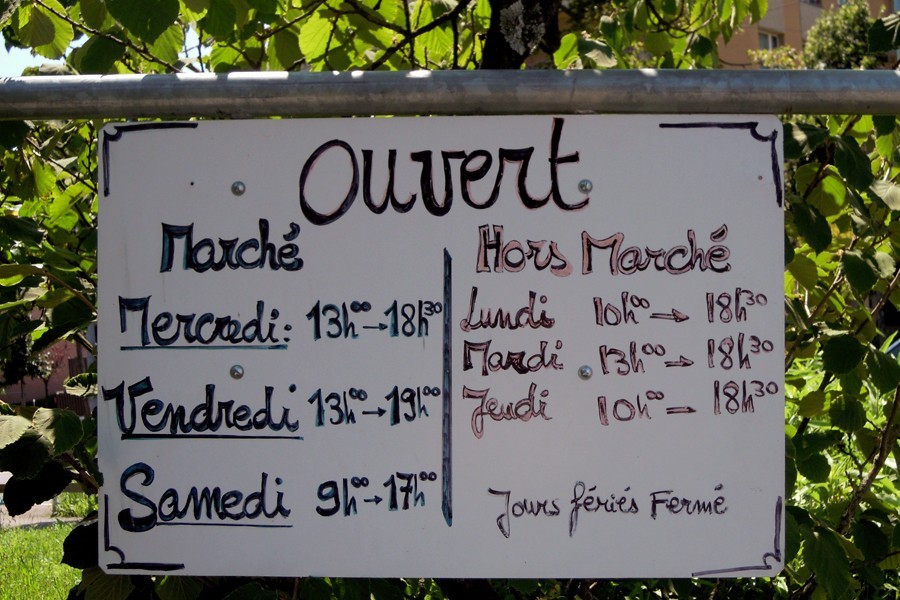 Ouvert
Marché
Mercredi: 13h00→18h30
Vendredi 13h00→19h00
Samedi 9h00→17h00
Hors Marché
Lundi 10h00→18h30
Mardi 13h00→18h30
Jeudi 10h00→18h30
Jours fériés Fermé